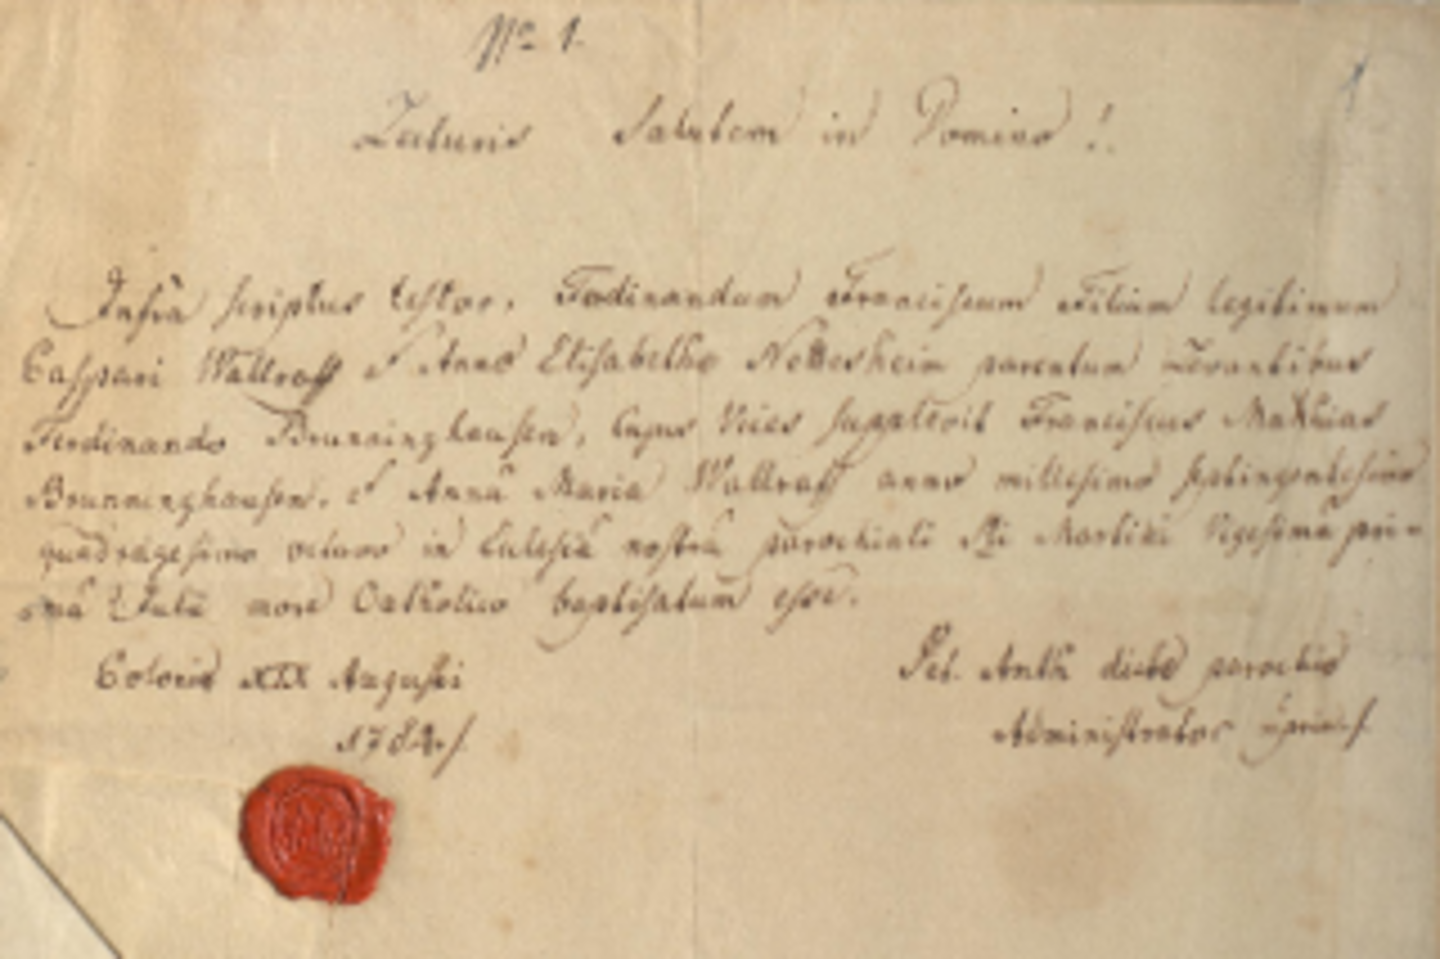 No. 1.
Lecturis Salutem in Domino!
Infra scriptus testor, Ferdinandum Franciscum Filium legitimum
Caspari Wallraff & Anna Elisabetha Nettesheim parentum Levantibus
Ferdinando Brunninghausen, cujus Vices supplevit Franciscus Mathias
Brunninghausen, & Annâ Maria Wallraff anno millesimo septingentesimo
quadragesimo octavo in Ecclesiâ nostrâ parochiali Sti Martini Vigesimâ pri-
mâ Julii more Catholico baptisatum esse.
Colonia XIX Augusti
Pet. Anth. parochia
Administrator